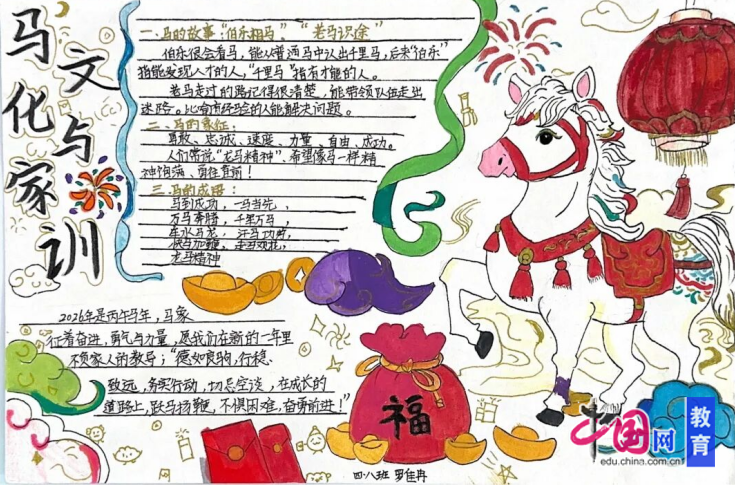 马文化与家训
一.马的故事:“伯乐相马”、“老马识途”
伯乐很会看马,能从普通马中认出千里马,后来“伯乐”
指能发现人才的人,“千里马”指有才能的人。
老马走过的路记得很清楚,能带领队伍走出
迷路。比喻有经验的人能解决问题。
二.马的象征:
勇敢、忠诚、速度、力量、自由、成功。
人们常说“龙马精神”,希望像马一样精
神饱满、勇往直前!
三.马的成语:
马到成功,一马当先、
万马奔腾,千里万马,
车水马龙,汗马功劳,
快马加鞭、走马观花,
龙马精神
2026年是丙午马年,马象
征着奋进,勇气与力量,愿我们在新的一年里
不负家人的教导;“德如良驹,行稳
致远,务实行动,切忌空谈,在成长的
道路上,跃马扬鞭,不惧困难,奋勇前进!”
福
四.八班 罗佳冉
中国网
edu.china.com.cn
教育